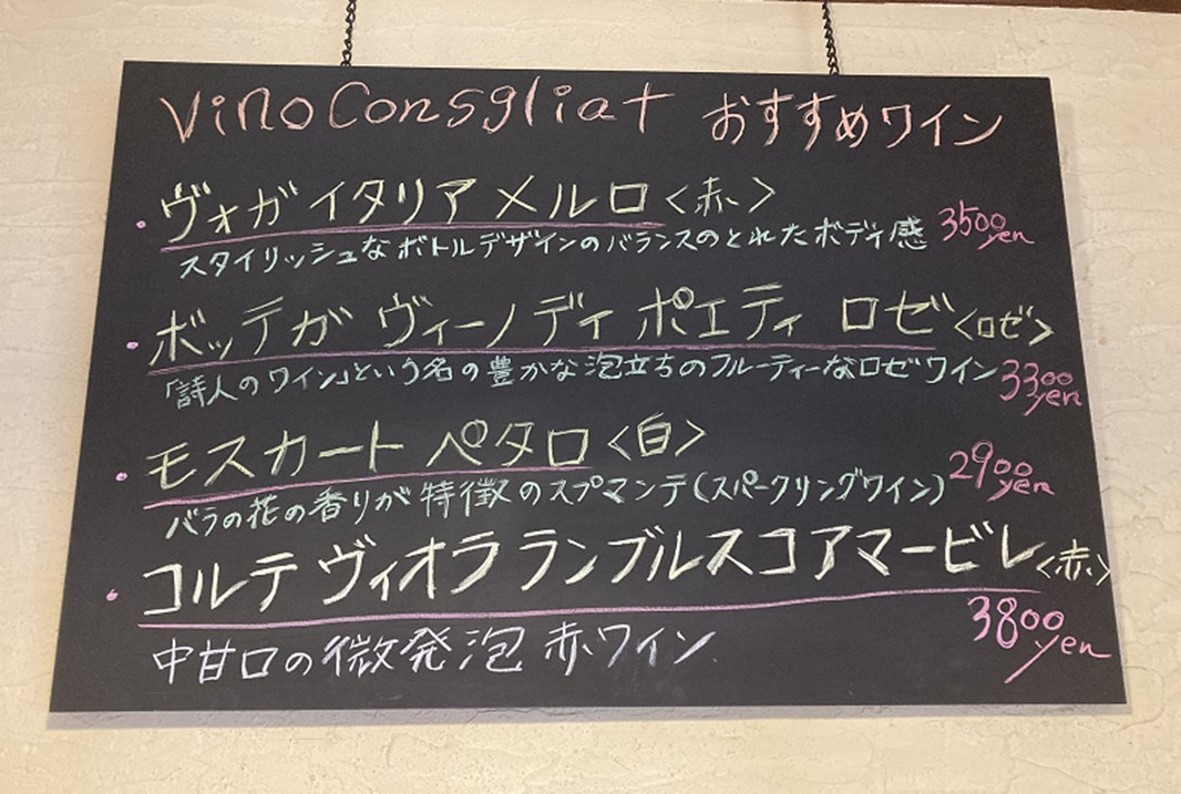 Vino Consgliat おすすめワイン
・ヴォガ イタリア メルロ〈赤〉
スタイリッシュなボトルデザインのバランスのとれたボディ感 3500yen
・ボッテガ ヴィーノ ディ ポエティ ロゼ〈ロゼ〉
「詩人のワイン」という名の豊かな泡立ちのフルーティーなロゼワイン 3300yen
・モスカート ペタロ〈白〉
バラの花の香りが特徴のスプマンテ(スパークリングワイン) 2900yen
・コルテ ヴィオラ ランブルスコアマービレ〈赤〉
中甘口の微発泡 赤ワイン 3800yen